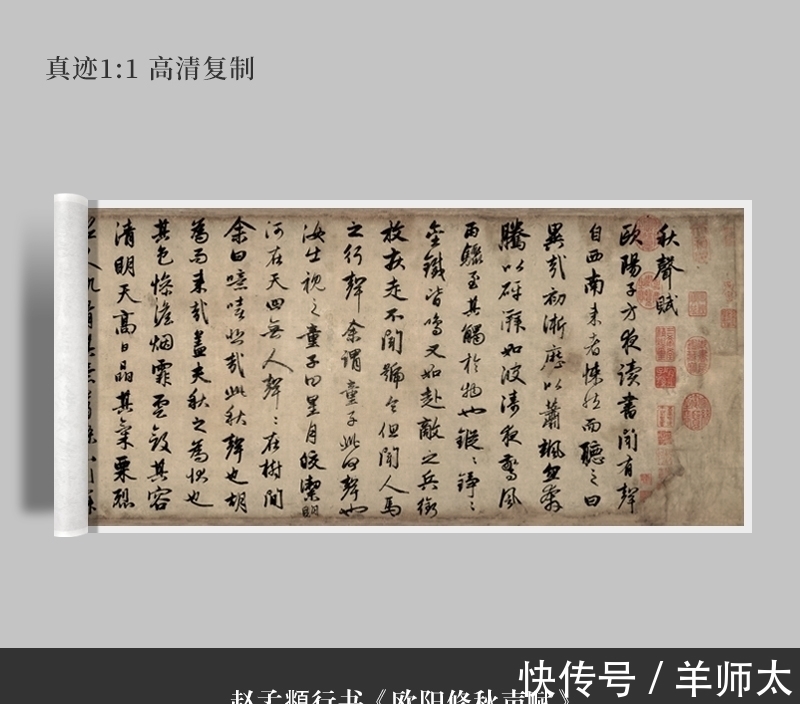 真迹1:1 高清复制
秋聲賦
歐陽子方夜读書聞有聲
自西南来者悚然而聽之曰
異哉初淅瀝以蕭飒忽奔
騰以砰湃如波濤夜驚風
雨驟至其觸於物也鏦〻錚〻
金鐵皆鳴又如赴敵之兵銜
枚疾走不聞號令但聞人馬
之行聲余謂童子此何聲也
汝出視之童子曰星月皎潔明
河在天四無人聲〻在樹間
余曰噫嘻悲哉此秋聲也胡
為而来哉盖夫秋之為状也
其色慘澹烟霏雲斂其容
清明天高日晶其氣栗烈
快传号 / 羊师太
赵孟頫行书《欧阳修秋声赋》